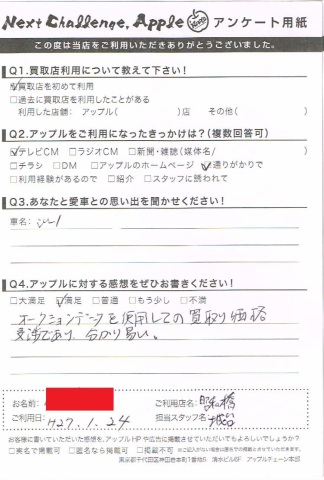 Next Challenge, Apple アンケート用紙
この度は当店をご利用いただきありがとうございました。
Q1.買取店利用について教えて下さい!
☑買取店を初めて利用
□過去に買取店を利用したことがある
利用した店舗: アップル( )店 その他( )
Q2.アップルをご利用になったきっかけは?(複数回答可)
☑テレビCM □ラジオCM □新聞・雑誌(媒体名/ )
□チラシ □DM □アップルのホームページ ☑通りがかりで
□利用経験があるので □紹介 □スタッフに誘われて
Q3.あなたと愛車との思い出を聞かせください!
車名:
Q4.アップルに対する感想をぜひお書きください!
□大満足 ☑満足 □普通 □もう少し □不満
オークションデータを使用しての買取り価格
交渉であり 分かり易い。
お名前: ご利用店名: 昭和橋
ご利用日: H27.1.24 担当スタッフ名:
お客様に書いていただいた感想を、アップルHPや広告に掲載させていただいてもよろしいでしょうか?
□実名で掲載可 □匿名なら掲載可 □掲載不可 ※ご記入がない場合は匿名での掲載とさせていただきます。
東京都千代田区神田岩本町1番地5 清水ビル8F アップルチェーン本部